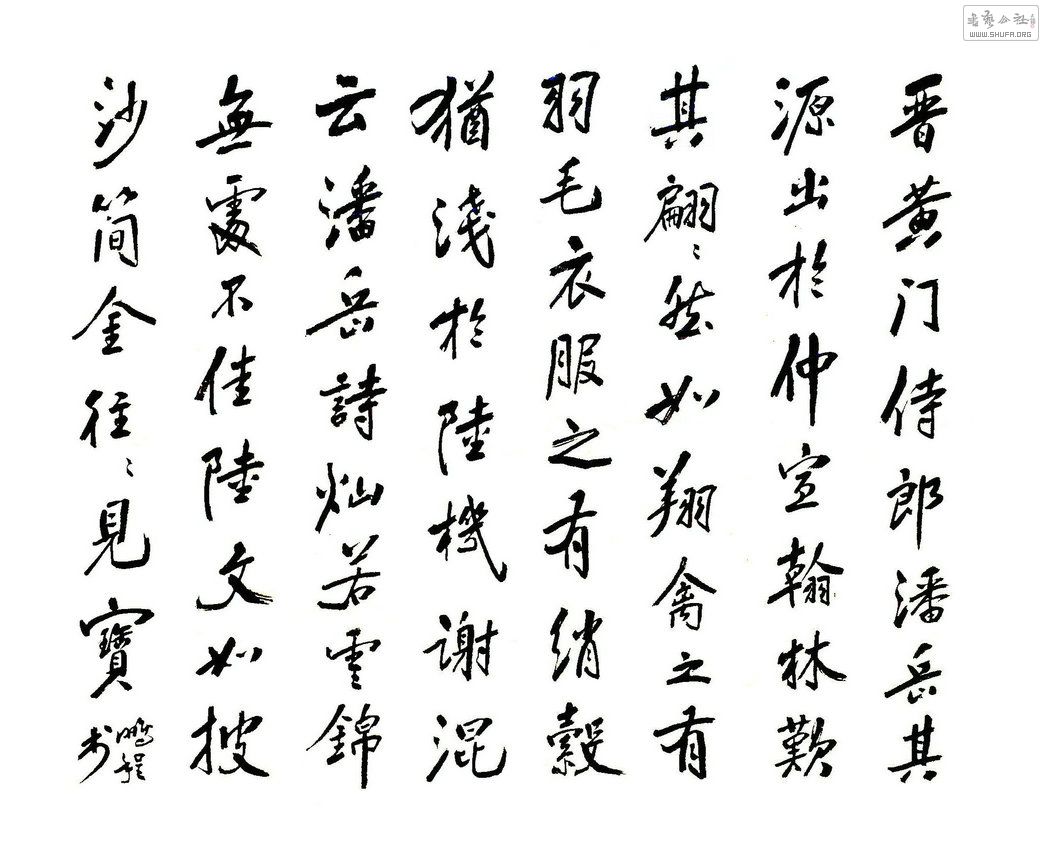 晋黄门侍郎潘岳其
源出於仲宣翰林歎
其翩〻然如翔禽之有
羽毛衣服之有绡縠
猶淺於陸機谢混
云潘岳詩灿若雲錦
無處不佳陸文如披
沙简金往〻見寶
鵬程书
WWW.SHUFA.ORG